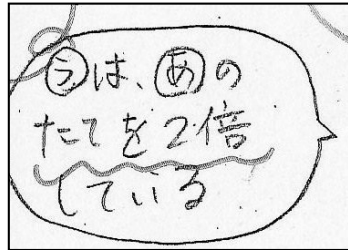 うは、あの
たてを2倍
している